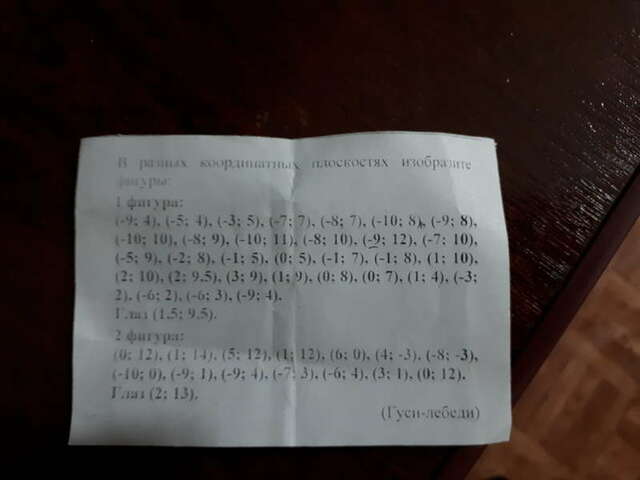 В разных координатных плоскостях изобразите
фигуры:
1 фигура:
(-9; 4), (-5; 4), (-3; 5), (-7; 7), (-8; 7), (-10; 8), (-9; 8),
(-10; 10), (-8; 9), (-10; 11), (-8; 10), (-9; 12), (-7; 10),
(-5; 9), (-2; 8), (-1; 5), (0; 5), (-1; 7), (-1; 8), (1; 10),
(2; 10), (2; 9.5), (3; 9), (1; 9), (0; 8), (0; 7), (1; 4), (-3;
2), (-6; 2), (-6; 3), (-9; 4).
Глаз (1.5; 9.5).
2 фигура:
(0; 12), (1; 14), (5; 12), (1; 12), (6; 0), (4; -3), (-8; -3),
(-10; 0), (-9; 1), (-9; 4), (-7; 3), (-6; 4), (3; 1), (0; 12).
Глаз (2; 13).
(Гуси-лебеди)